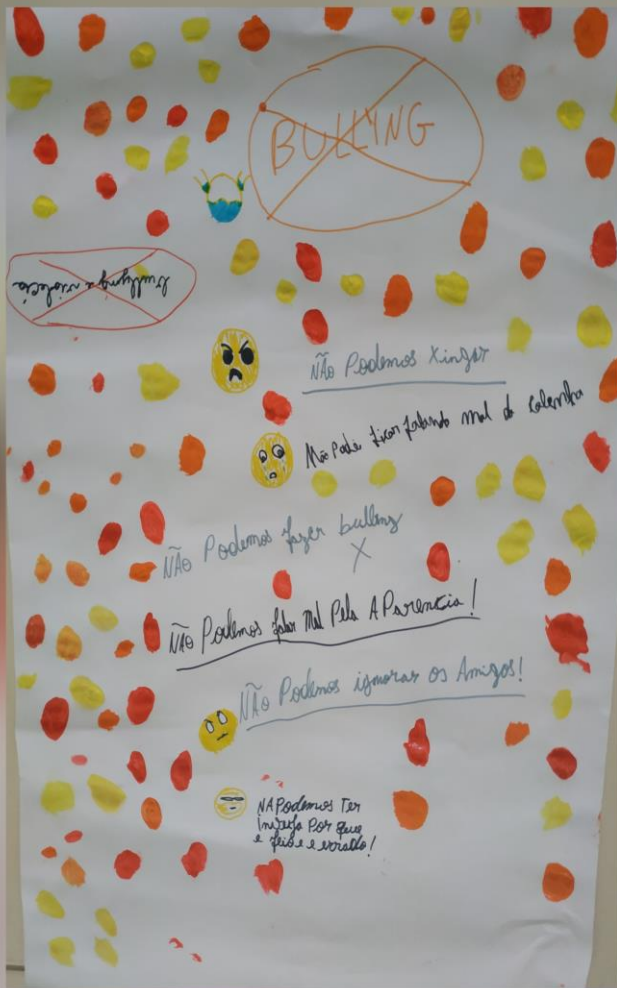 BULLYING
bullying e violência
NÃO Podemos Xingar
Não Pode ficar falando mal do coleguinha
NÃO Podemos fazer bulling
X
NÃO Podemos falar Mal Pela APARENCIA!
NÃO Podemos ignorar os Amigos!
NAPodemos Ter
inveja Por que
e feio e errado!